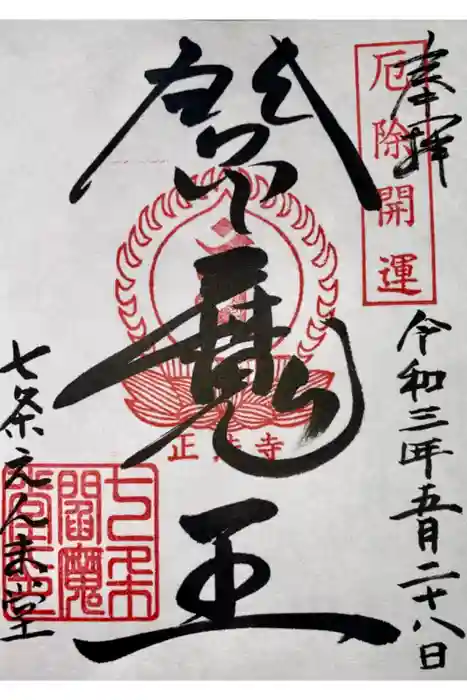 奉拝
厄除開運
令和三年五月二十八日
魔王
正法寺
七条えんま堂
七条
閻魔